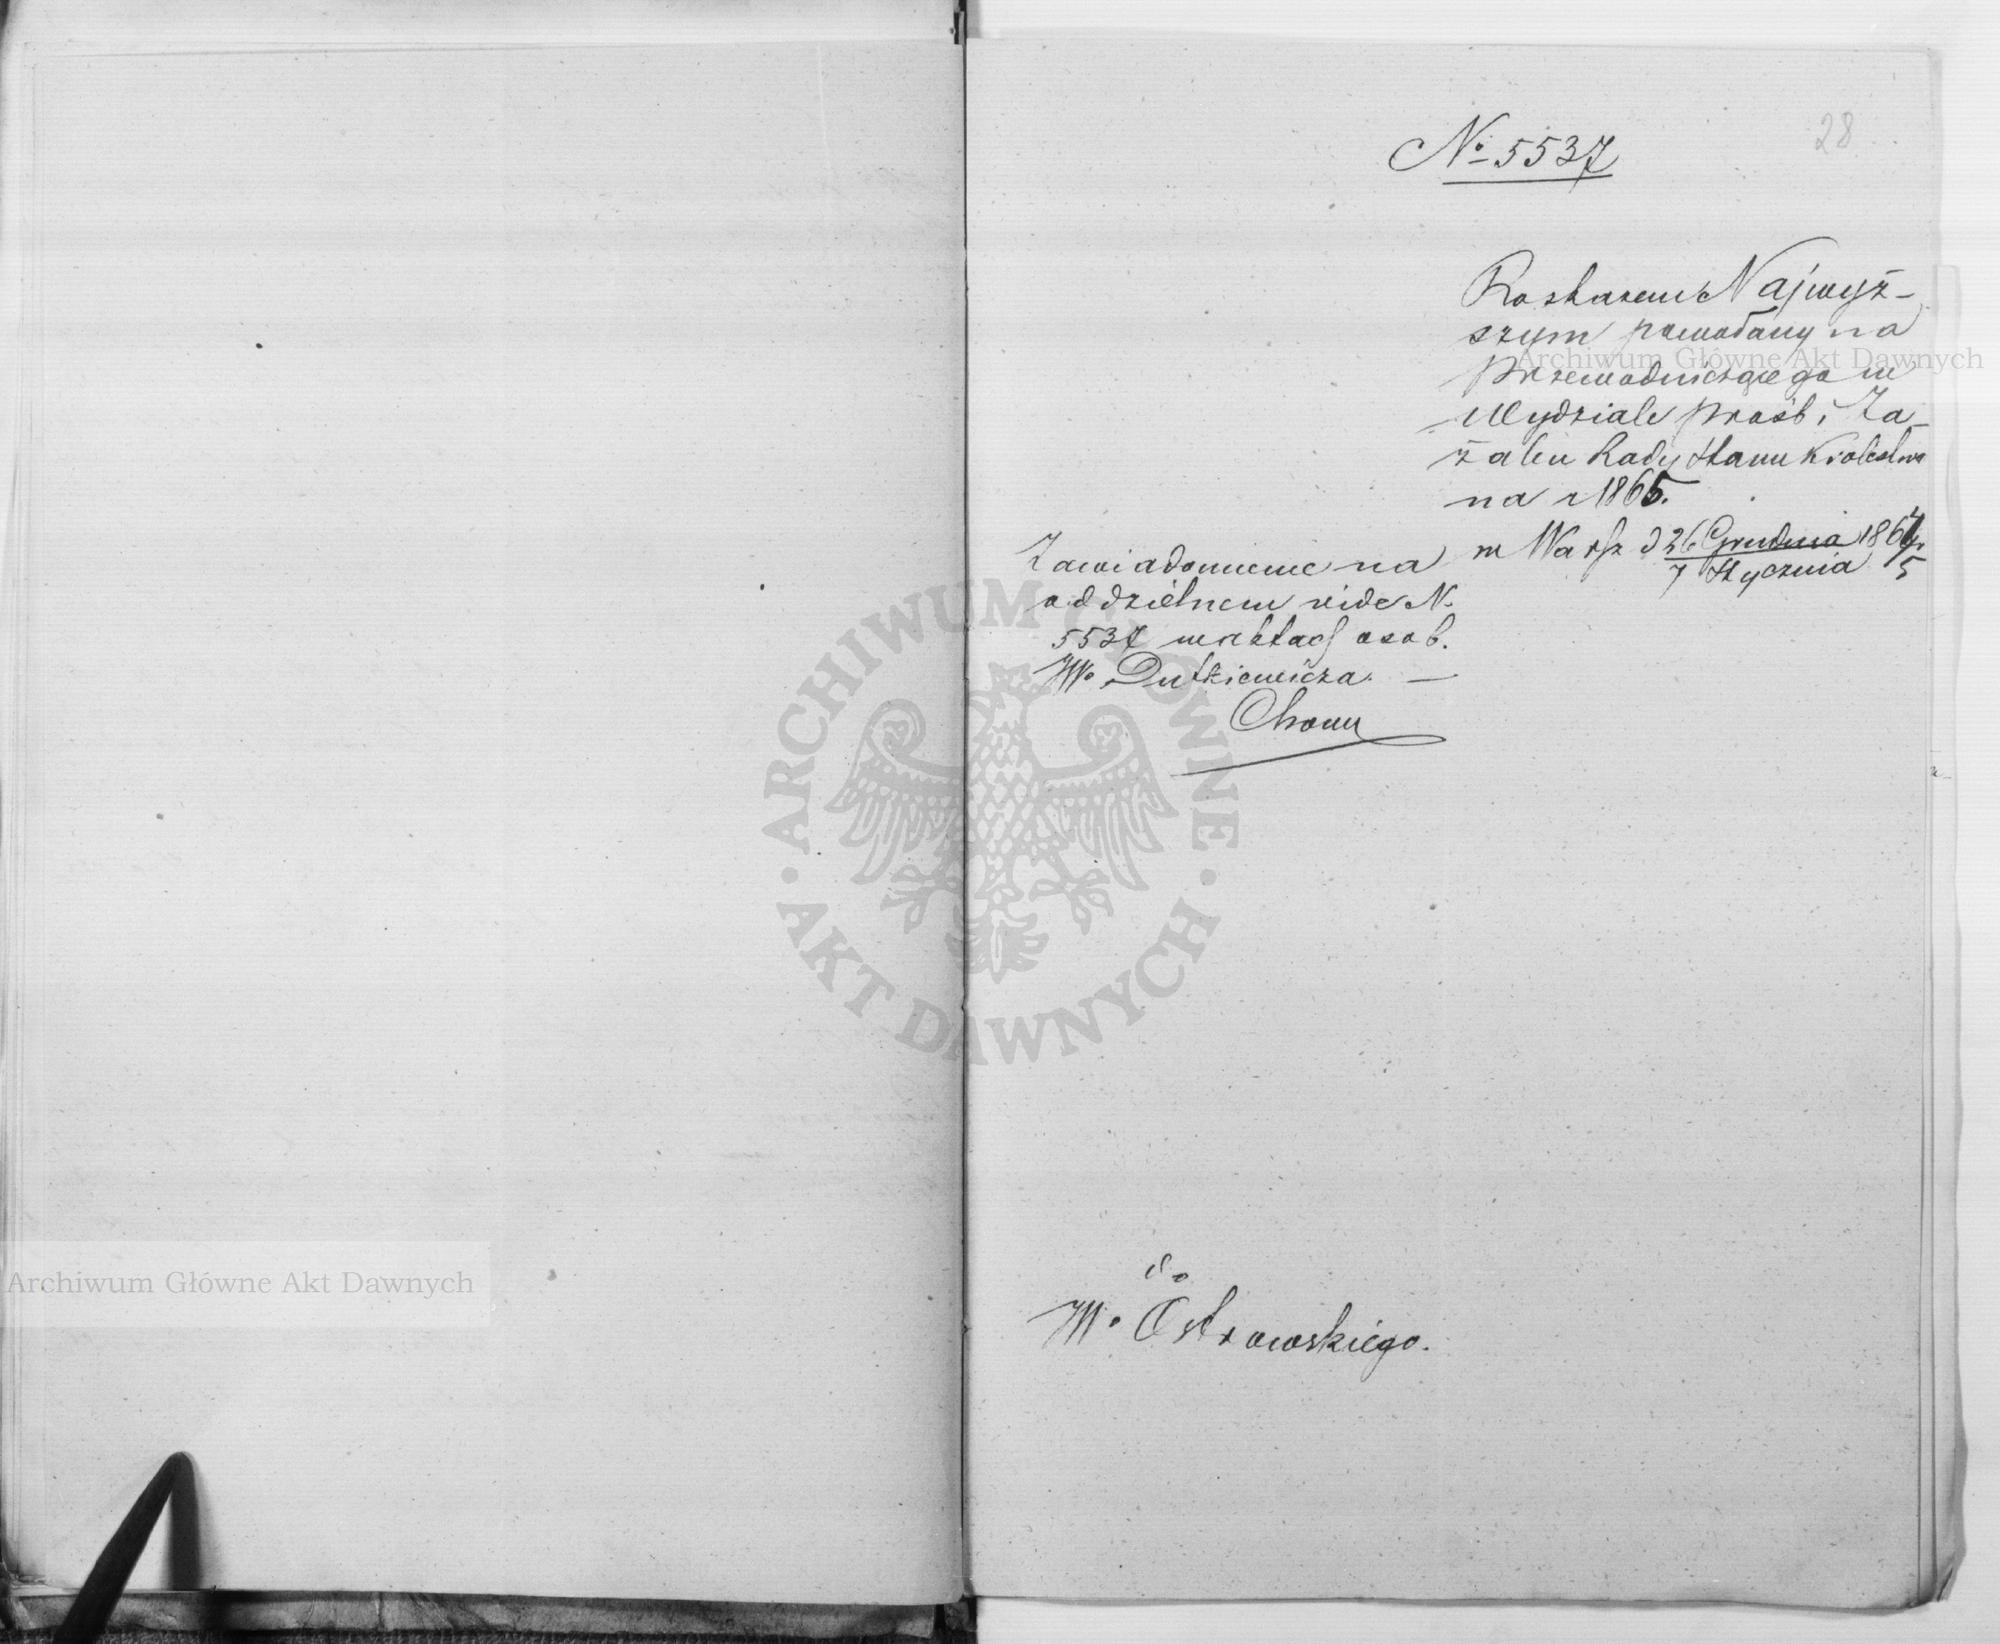 28
No 5537
Roskazem Najwyż-
szym powołany na
Przewodniczącego w
Wydziale prośb i Za-
żaleń Rady Stanu Królestwa
na r 1865.
w Warsz d 26 Grudnia / 7 Stycznia 1864/5 r.
Zawiadomienie na
oddzielnem vide N.
5537 w aktach osob.
JWo Dutkiewicza. —
Do
JWo Ostrowskiego.
Archiwum Główne Akt Dawnych
ARCHIWUM GŁÓWNE · AKT DAWNYCH ·
Archiwum Główne Akt Dawnych